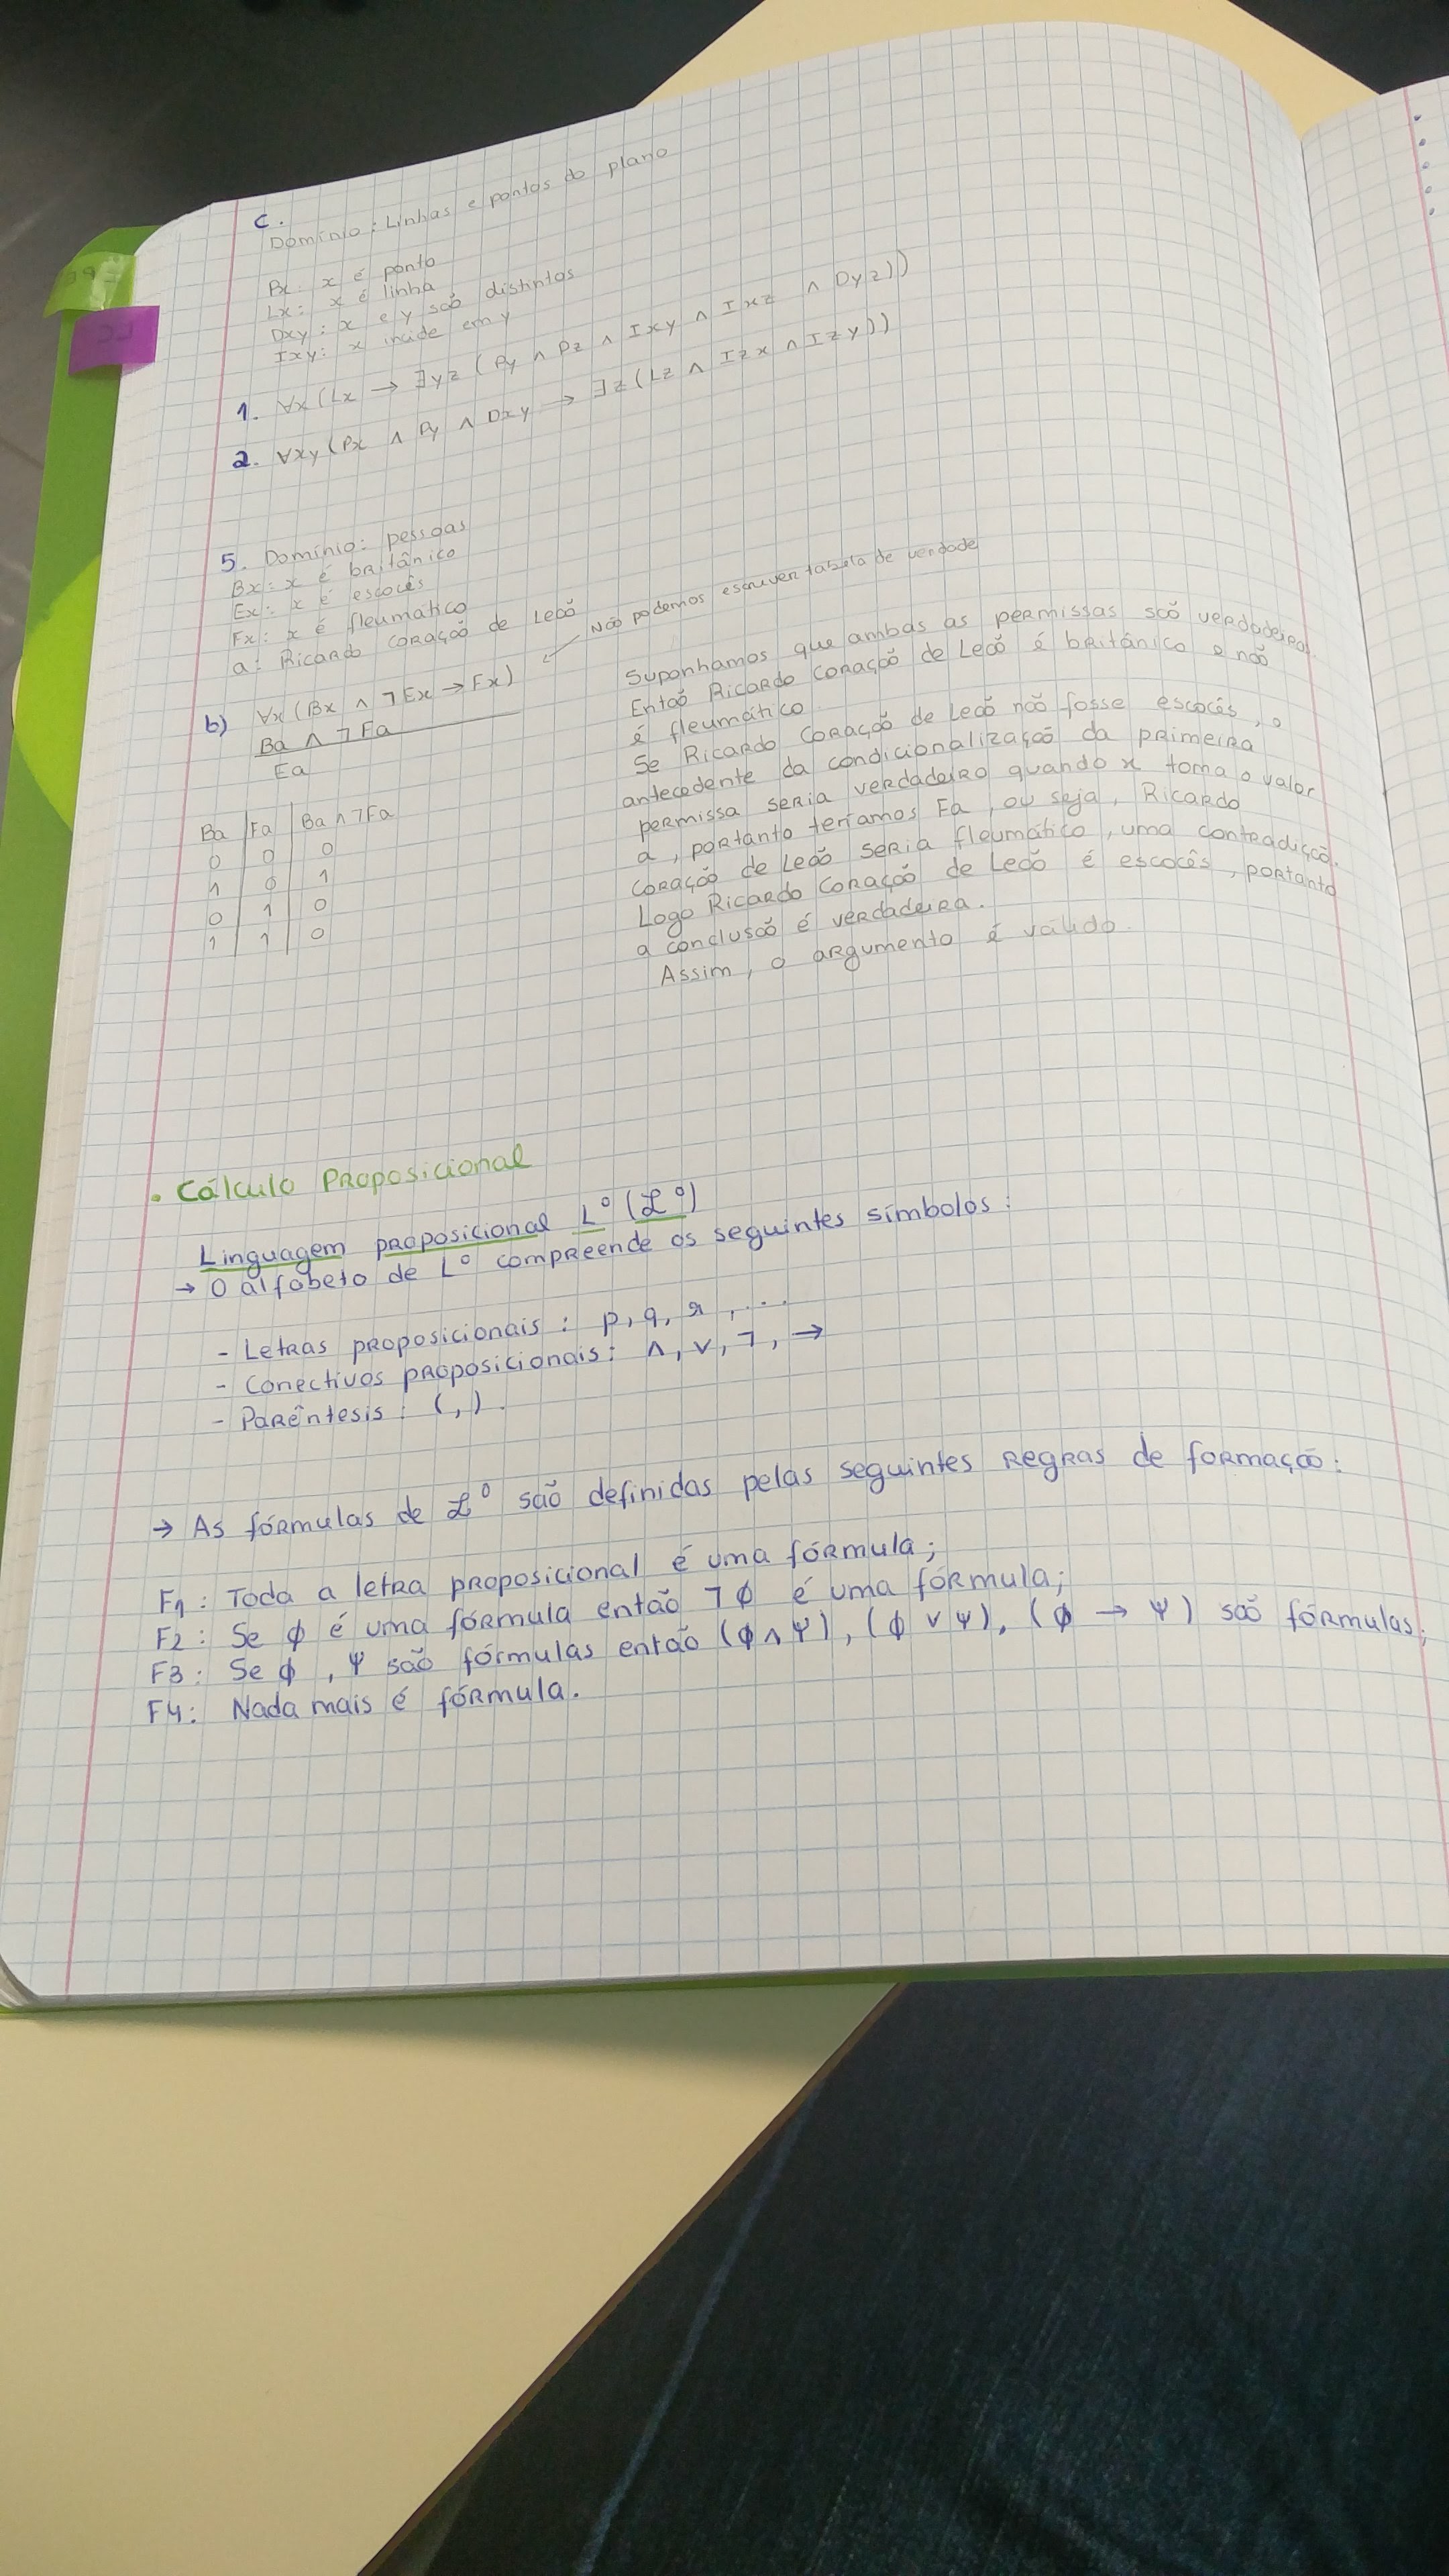 c.
Domínio: Linhas e pontos do plano
Px: x é ponto
Lx: x é linha
Dxy: x e y são distintos
Ixy: x incide em y
1. ∀x(Lx → ∃yz (Py ∧ Pz ∧ Ixy ∧ Ixz ∧ Dyz))
2. ∀xy(Px ∧ Py ∧ Dxy → ∃z(Lz ∧ Izx ∧ Izy))
5. Domínio: pessoas
Bx: x é britânico
Ex: x é escocês
Fx: x é fleumático
a: Ricardo Coração de Leão
Não podemos escrever tabela de verdade
b) ∀x(Bx ∧ ¬Ex → Fx)
Ba ∧ ¬Fa
Ea
Ba | Fa | Ba ∧ ¬Fa
0 | 0 | 0
1 | 0 | 1
0 | 1 | 0
1 | 1 | 0
Suponhamos que ambas as permissas são verdadeiras.
Então Ricardo Coração de Leão é britânico e não
é fleumático.
Se Ricardo Coração de Leão não fosse escocês, o
antecedente da condicionalização da primeira
permissa seria verdadeiro quando x toma o valor
a, portanto teríamos Fa, ou seja, Ricardo
Coração de Leão seria fleumático, uma contradicção.
Logo Ricardo Coração de Leão é escocês, portanto
a conclusão é verdadeira.
Assim, o argumento é válido.
• Cálculo Proposicional
Linguagem proposicional L⁰ (ℒ⁰)
→ O alfabeto de L⁰ compreende os seguintes símbolos:
- Letras proposicionais: p, q, r, ...
- Conectivos proposicionais: ∧, ∨, ¬, →
- Parêntesis: (, ).
→ As fórmulas de ℒ⁰ são definidas pelas seguintes regras de formação:
F1: Toda a letra proposicional é uma fórmula;
F2: Se ϕ é uma fórmula então ¬ϕ é uma fórmula;
F3: Se ϕ, ψ são fórmulas então (ϕ ∧ ψ), (ϕ ∨ ψ), (ϕ → ψ) são fórmulas;
F4: Nada mais é fórmula.